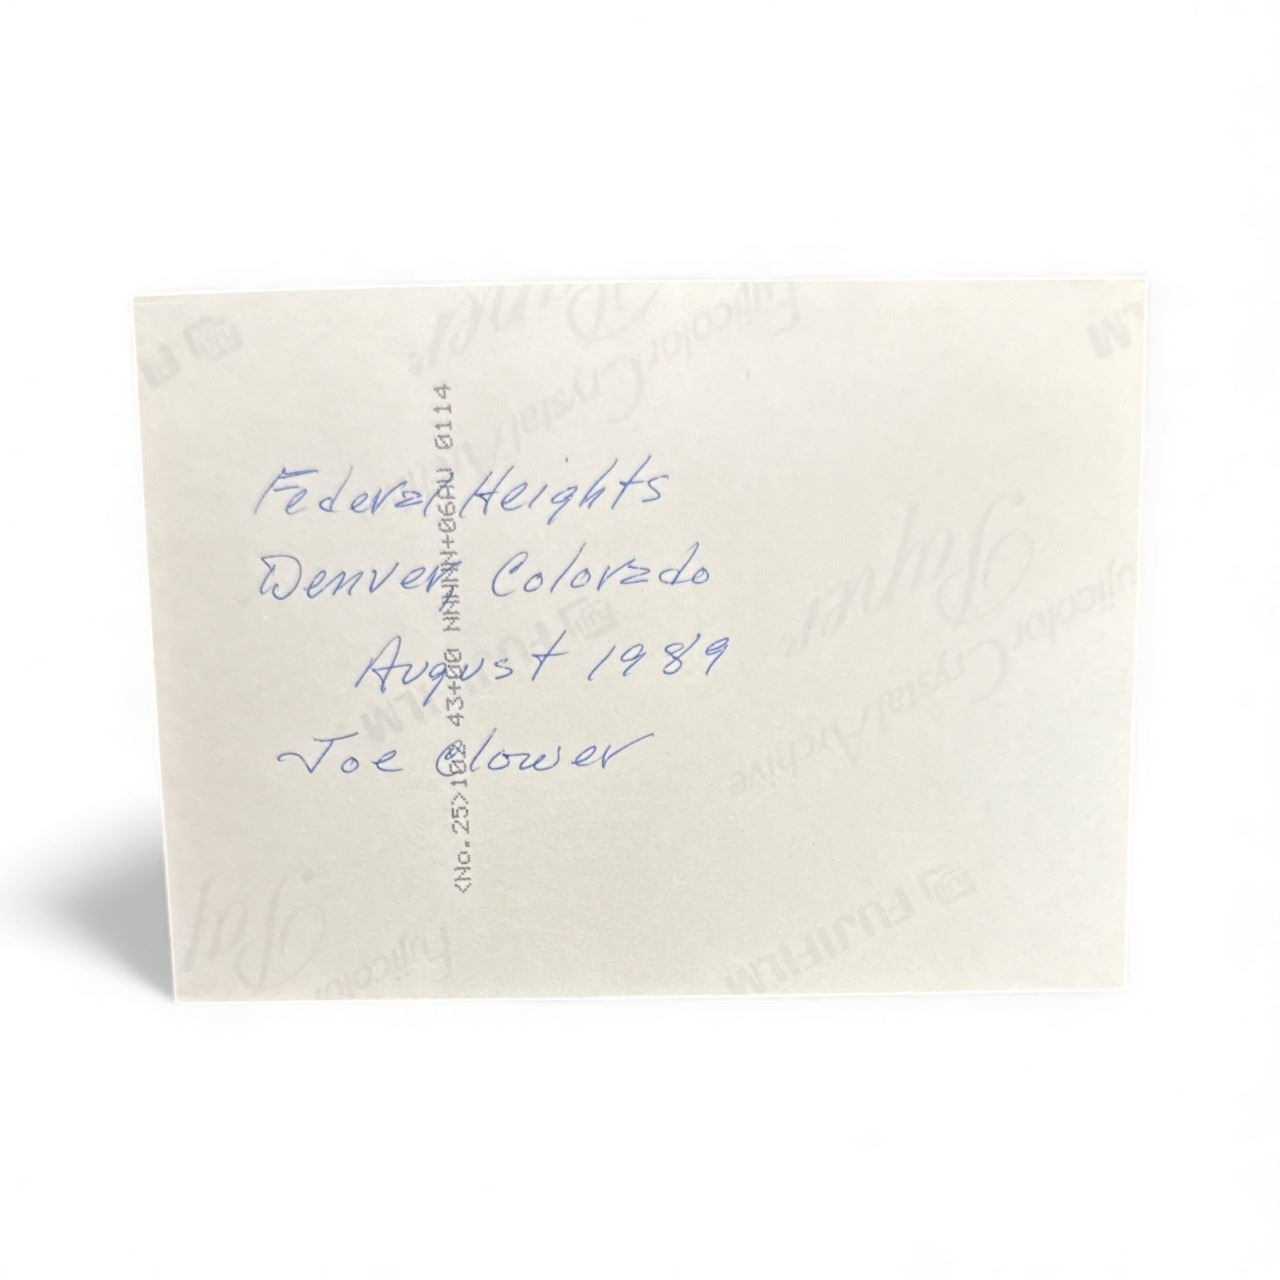 Federal Heights
Denver, Colorado
August 1989
Joe Clower
<No. 25>102 43+00 NNNNN+06AU 0114
Fujicolor Crystal Archive
Paper
FUJIFILM
Fujicolor Crystal Archive
Paper
FUJIFILM